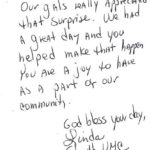 Our girls really appreciated
that surprise. We had
a great day and you
helped make that happen
You are a joy to have
as a part of our
community.
God bless your day,
Linda
UMC